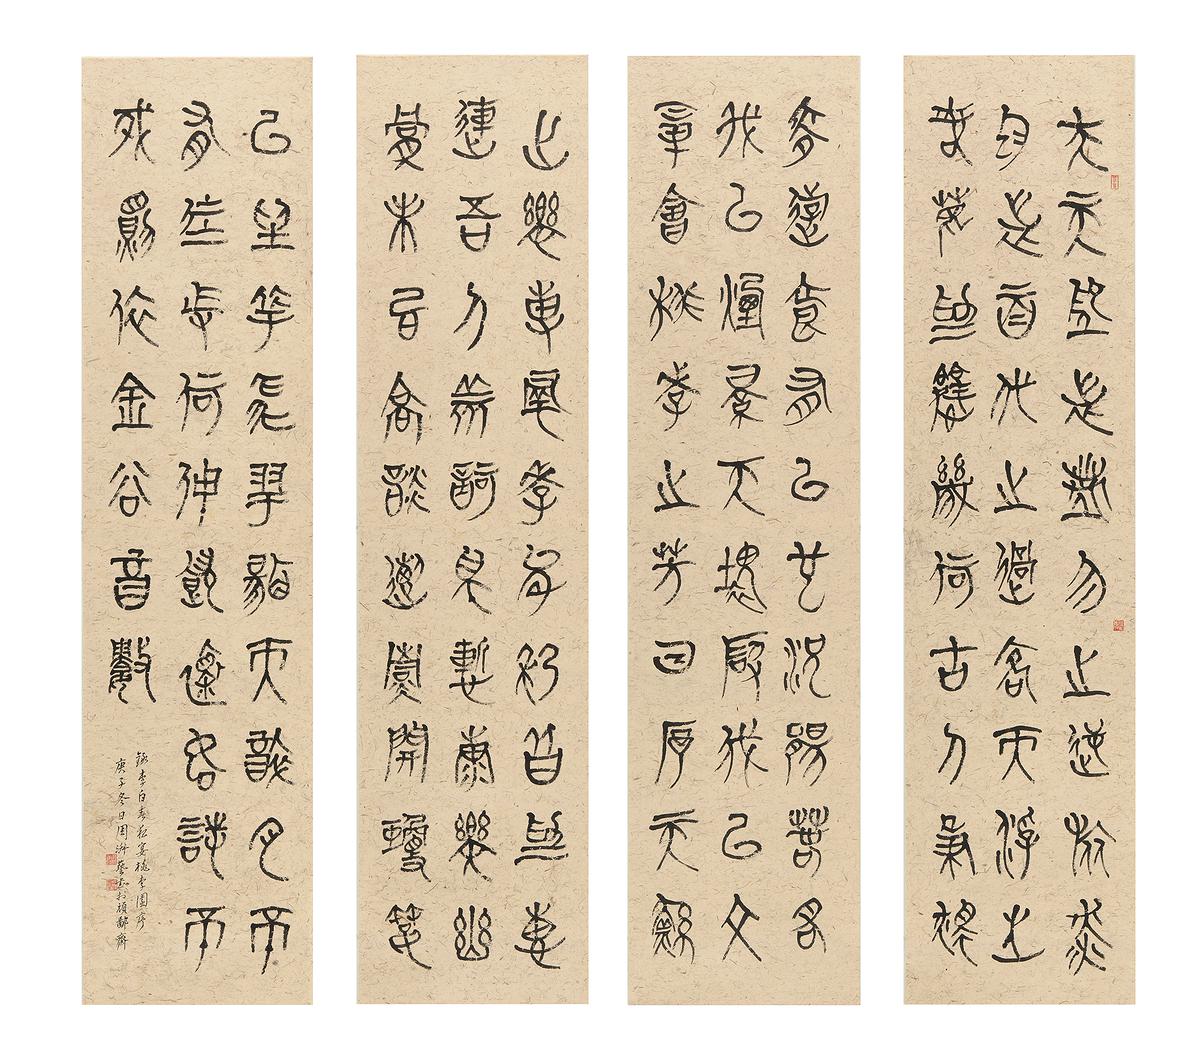 夫天地者萬物之逆旅光
陰者百代之過客而浮生
若夢為歡幾何古人秉燭
夜遊良有以也況陽春召
我以煙景大塊假我以文
章會桃李之芳園序天倫
之樂事群季俊秀皆為惠
連吾人詠歌獨慚康樂幽
賞未已高談轉清開瓊筵
以坐花飛羽觴而醉月不
有佳作何伸雅懷如詩不
成罰依金谷酒數
錄李白春夜宴桃李園序
庚子冬日周